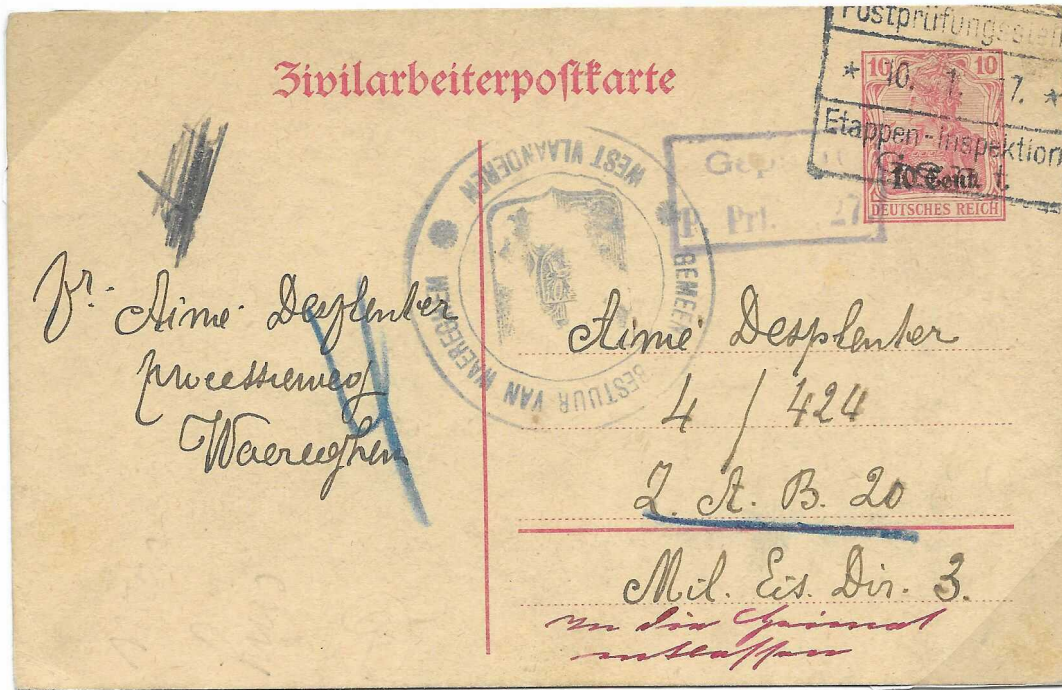 Zivilarbeiterpostkarte
Postprüfungsstelle
* 10. 1. 17. *
Etappen-Inspektion
10 10
10 Cent.
DEUTSCHES REICH
P. Prf. 27
GEMEENTEBESTUUR VAN WAEREGHEM
WEST VLAANDEREN
fr. Aimé Desplenter
Processieweg
Waereghem
4
Aimé Desplenter
4 / 424
Z. A. B. 20
Mil. Eis. Dir. 3.
in die Heimat
entlassen